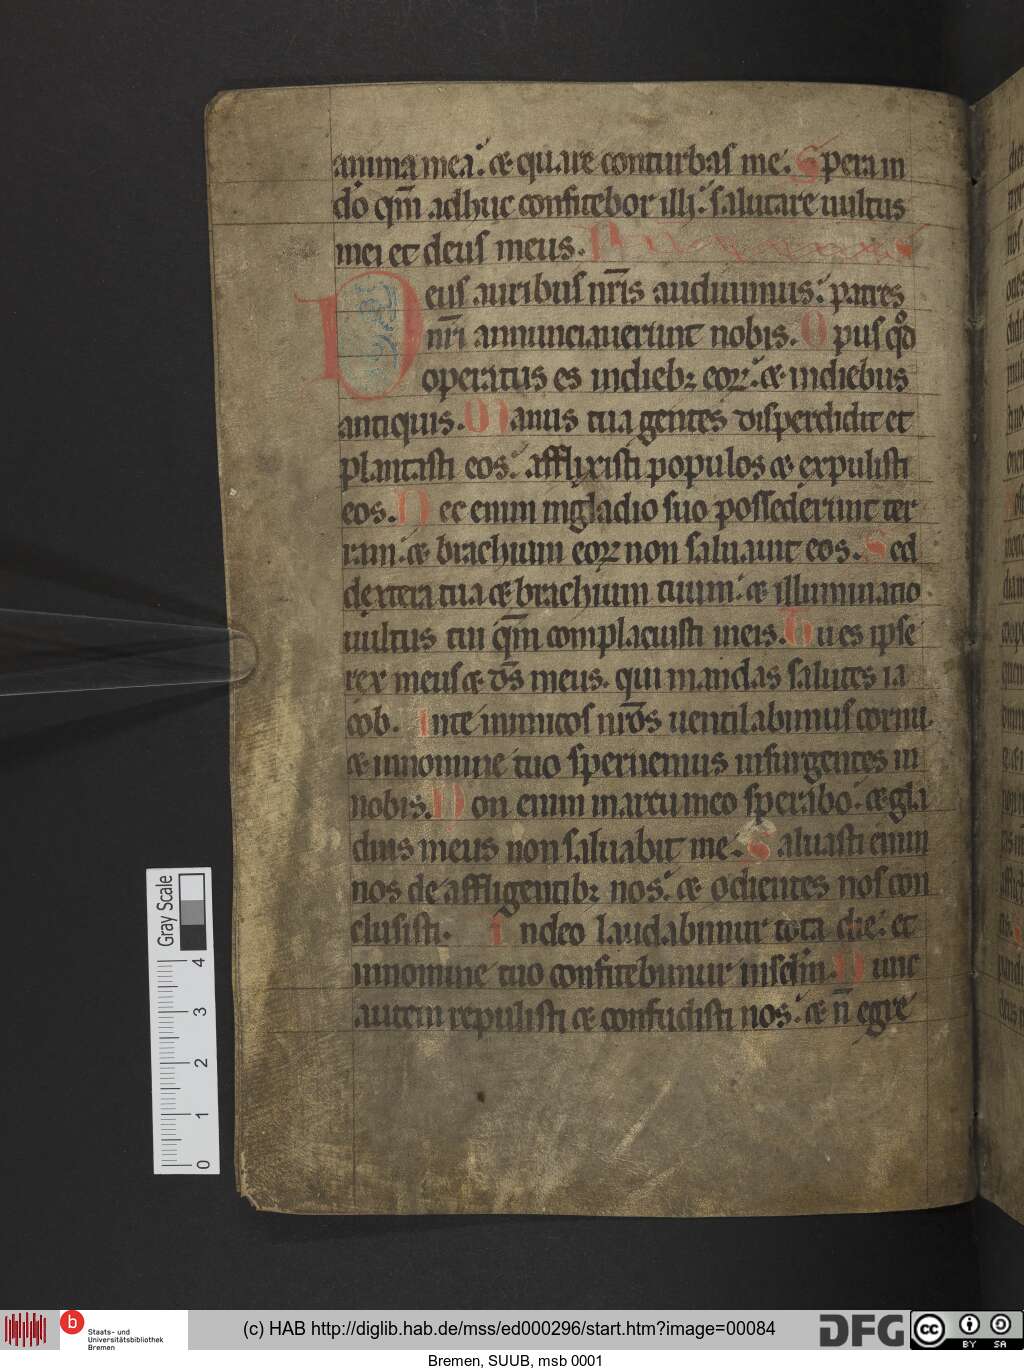 anima mea. & quare conturbas me. Spera in
dō qm̄ adhuc confitebor illi. salutare uultus
mei et deus meus.
Deus auribus nr̄is audiuimus. patres
nr̄i annunciauerunt nobis. Opus qd̄
operatus es indiebꝫ eoꝝ. & indiebus
antiquis. Manus tua gentes disperdidit et
plantasti eos. afflixisti populos & expulisti
eos. Nec enim ingladio suo possederunt ter
ram. & brachium eoꝝ non saluauit eos. Sed
dextera tua & brachium tuum. & illuminatio
uultus tui qm̄ complacuisti ineis. Tu es ipse
rex meus & ds̄ meus. qui mandas salutes ia
cob. Inte inimicos nr̄os uentilabimus cornu.
& innomine tuo spernemus insurgentes in
nobis. Non enim inarcu meo sperabo. & gla
dius meus non saluabit me. Saluasti enim
nos de affligentibꝫ nos. & odientes nos con
fusisti. Indeo laudabimur tota die. et
innomine tuo confitebimur insclm̄. Nunc
autem repulisti & confudisti nos. & n̄ egre
Gray Scale
4
3
2
1
0
b
Staats- und
Universitätsbibliothek
Bremen
(c) HAB http://diglib.hab.de/mss/ed000296/start.htm?image=00084
DFG
cc
BY SA
Bremen, SUUB, msb 0001